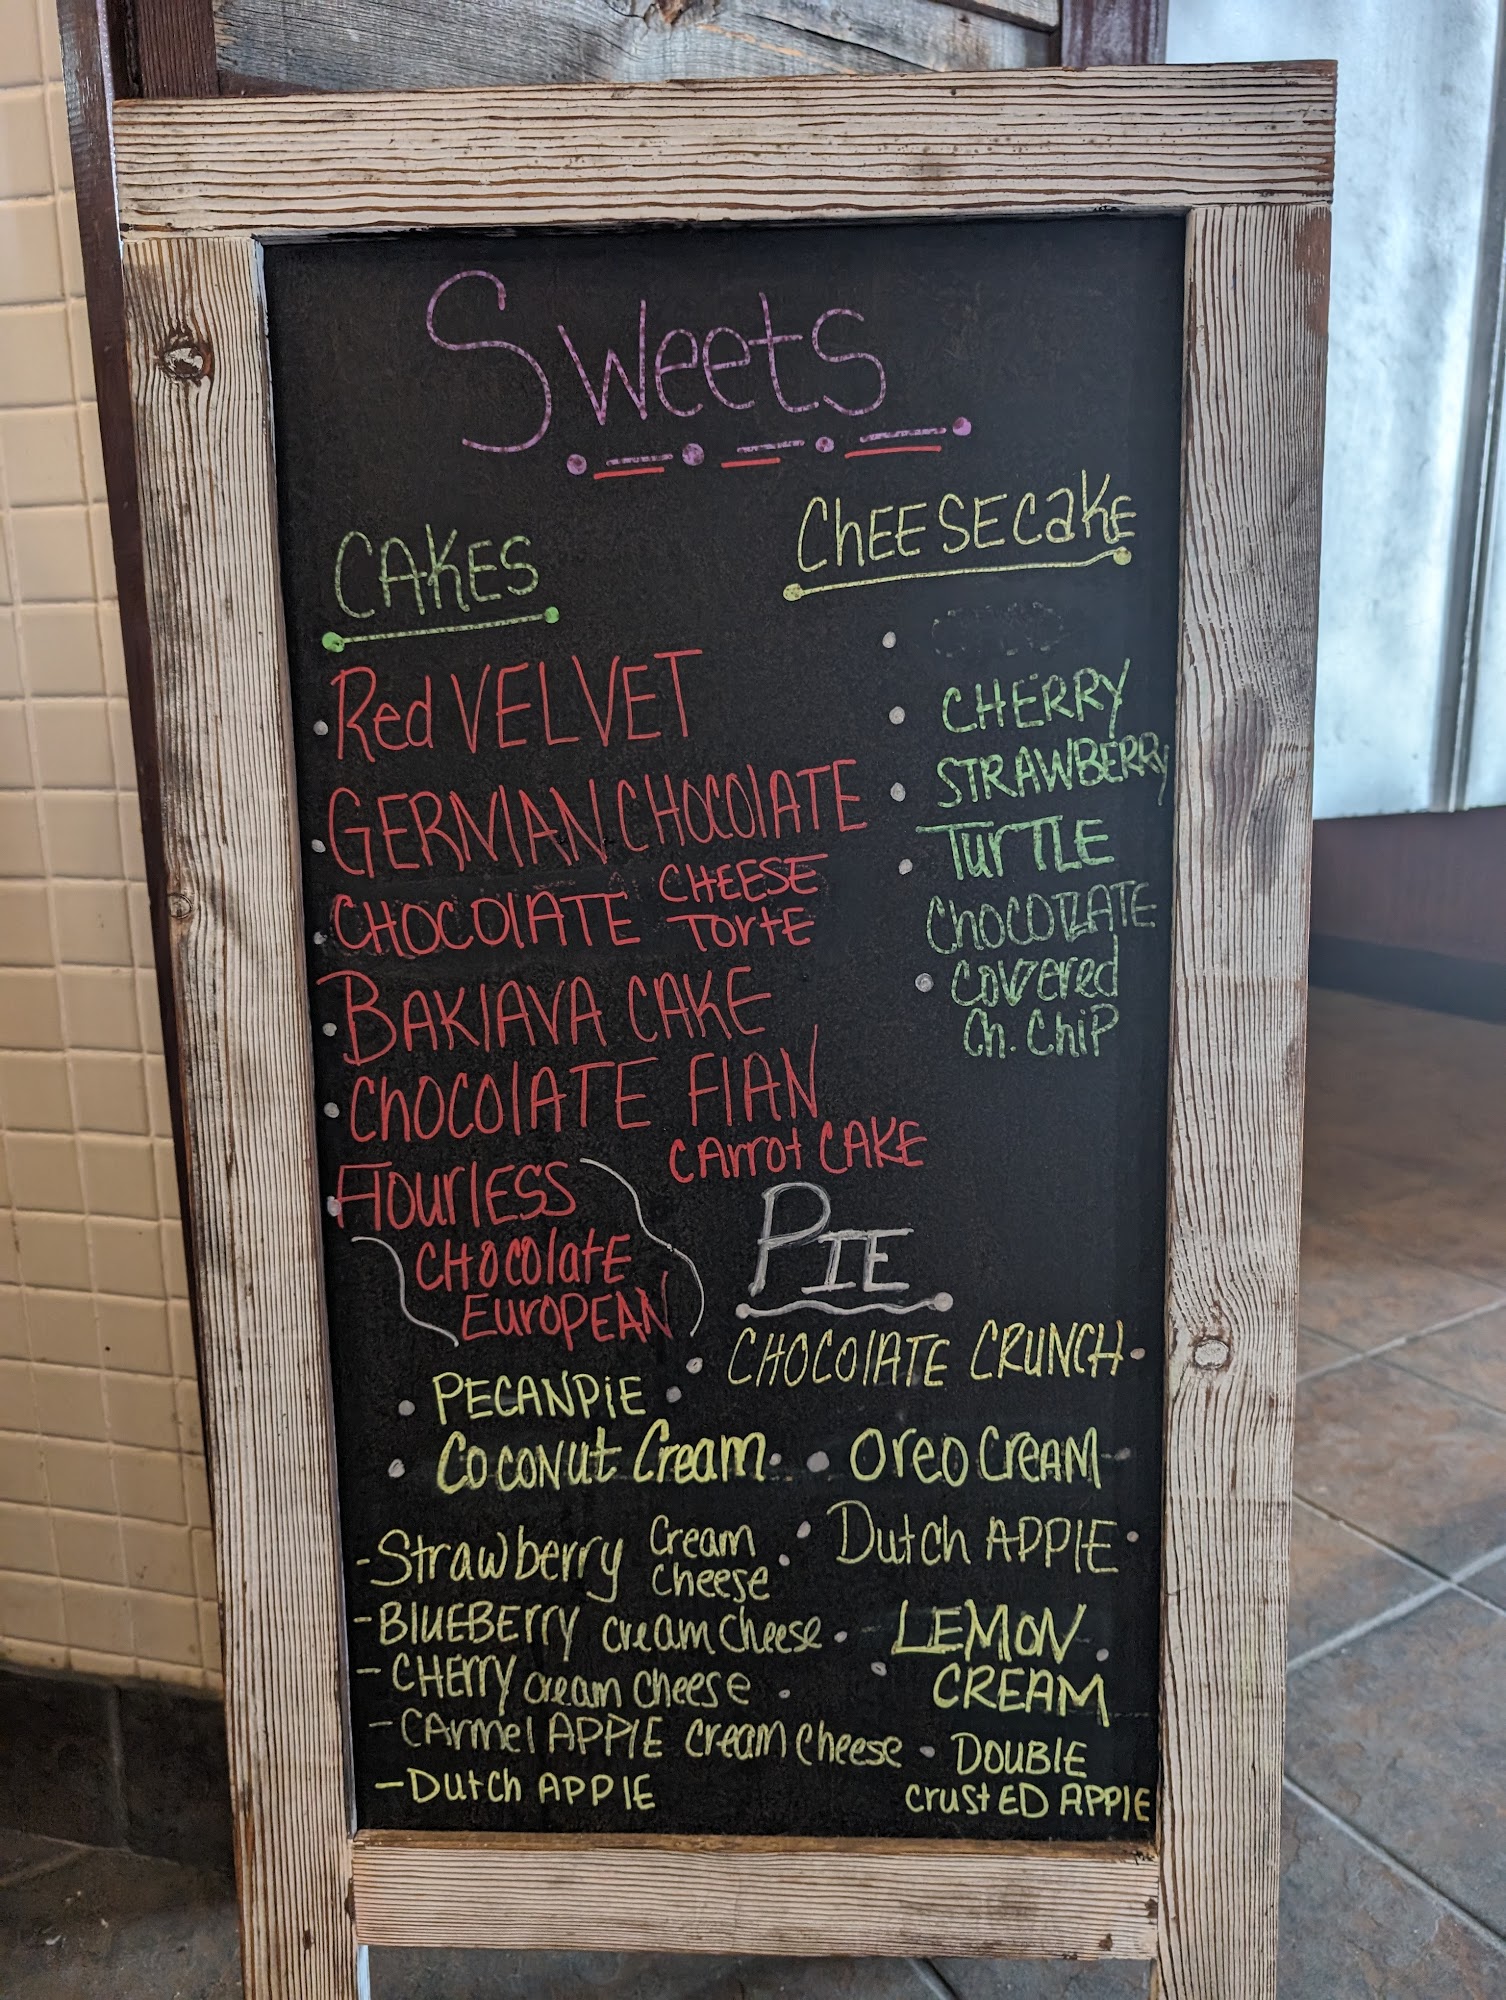 Sweets
CAKES
Red VELVET
GERMAN CHOCOLATE
CHOCOLATE CHEESE TORTE
BAKLAVA CAKE
CHOCOLATE FLAN
CARROT CAKE
Flourless
CHOCOLATE
EUROPEAN
CHEESECAKE
CHERRY
STRAWBERRY
TURTLE
CHOCOLATE
COVERED
Ch. CHIP
PIE
CHOCOLATE CRUNCH
PECANPIE
COCONUT Cream
OREO CREAM
Strawberry Cream Cheese
Dutch APPLE
BLUEBERRY cream cheese
LEMON
CREAM
CHERRY cream cheese
CARMEL APPLE cream cheese
DOUBLE
CRUSTED APPLE
Dutch APPLE